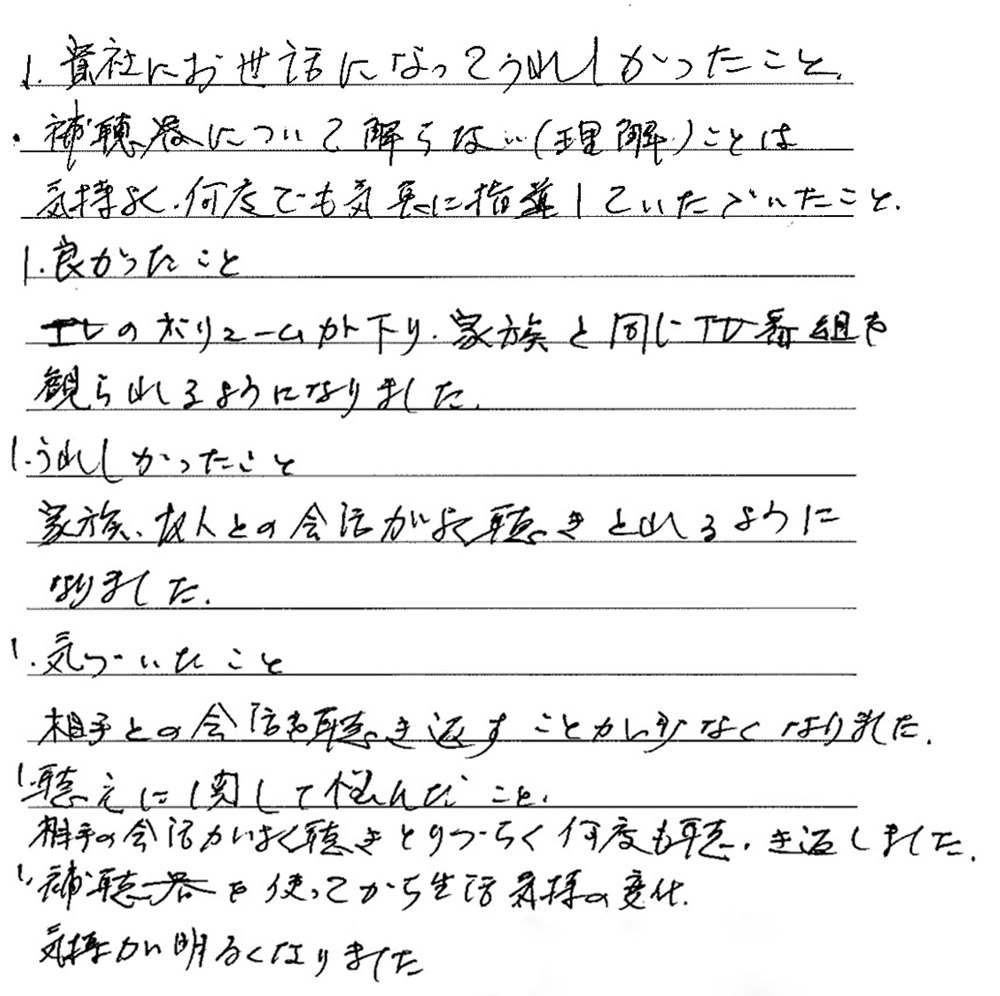 1. 貴社にお世話になってうれしかったこと.
・補聴器について解らない(理解)ことは
気持よく.何度でも気長に指導していただいたこと.
1.良かったこと
TVのボリュームが下り.家族と同じTV番組を
観られるようになりました.
1.うれしかったこと
家族、友人との会話がよく聴きとれるように
なりました.
1.気づいたこと
相手との会話を聴き返すことが少なくなりました.
1.聴えに関して悩んだこと.
相手の会話がよく聴きとりづらく何度も聴き返しました.
1.補聴器を使ってから生活気持の変化.
気持が明るくなりました